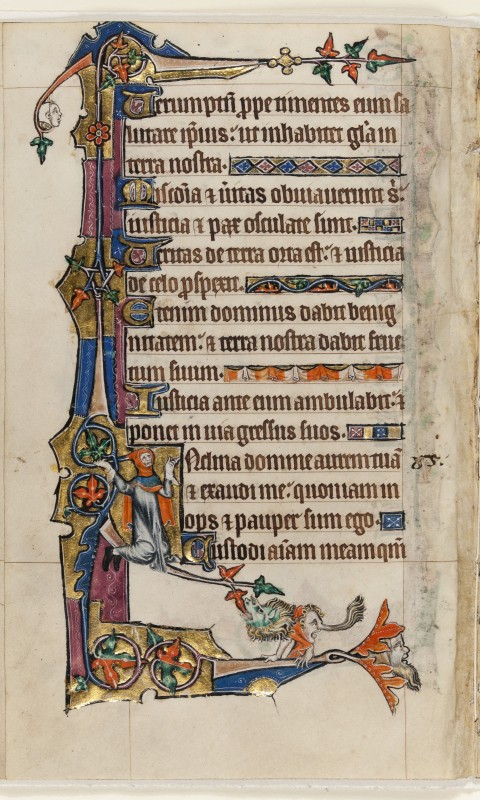 Uerumptn̄ ꝓpe timentes eum sa
lutare ip̄ius: ut inhabitet gl̄a in
terra nostra.
Misc̄dia ⁊ ūitas obuiauerunt s̄:
iusticia ⁊ pax osculate sunt.
Ueritas de terra orta est: ⁊ iusticia
de celo ꝓspexit.
Etenim dominus dabit benig
nitatem: ⁊ terra nostra dabit fruc
tum suum.
Iusticia ante eum ambulabit: ⁊
ponet in uia gressus suos.
Inclina domine aurem tuā
⁊ exaudi me: quoniam in
ops ⁊ pauper sum ego.
Custodi aīam meam qm̄
85.